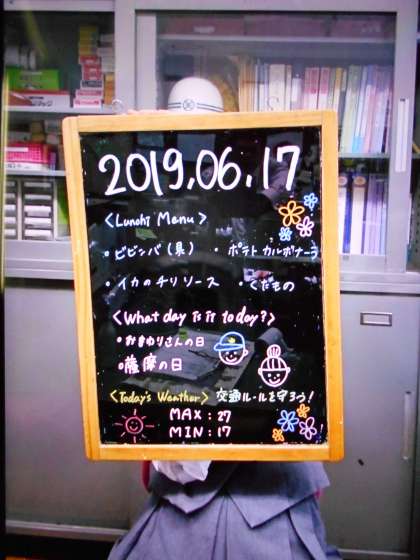 2019.06.17
<Lunch Menu>
・ビビンバ（具）　・ポテトカルボナーラ
・イカのチリソース　・くだもの
<What day is it today?>
・おまわりさんの日
・薩摩の日
<Today's Weather> 交通ルールを守ろう！
MAX : 27
MIN : 17